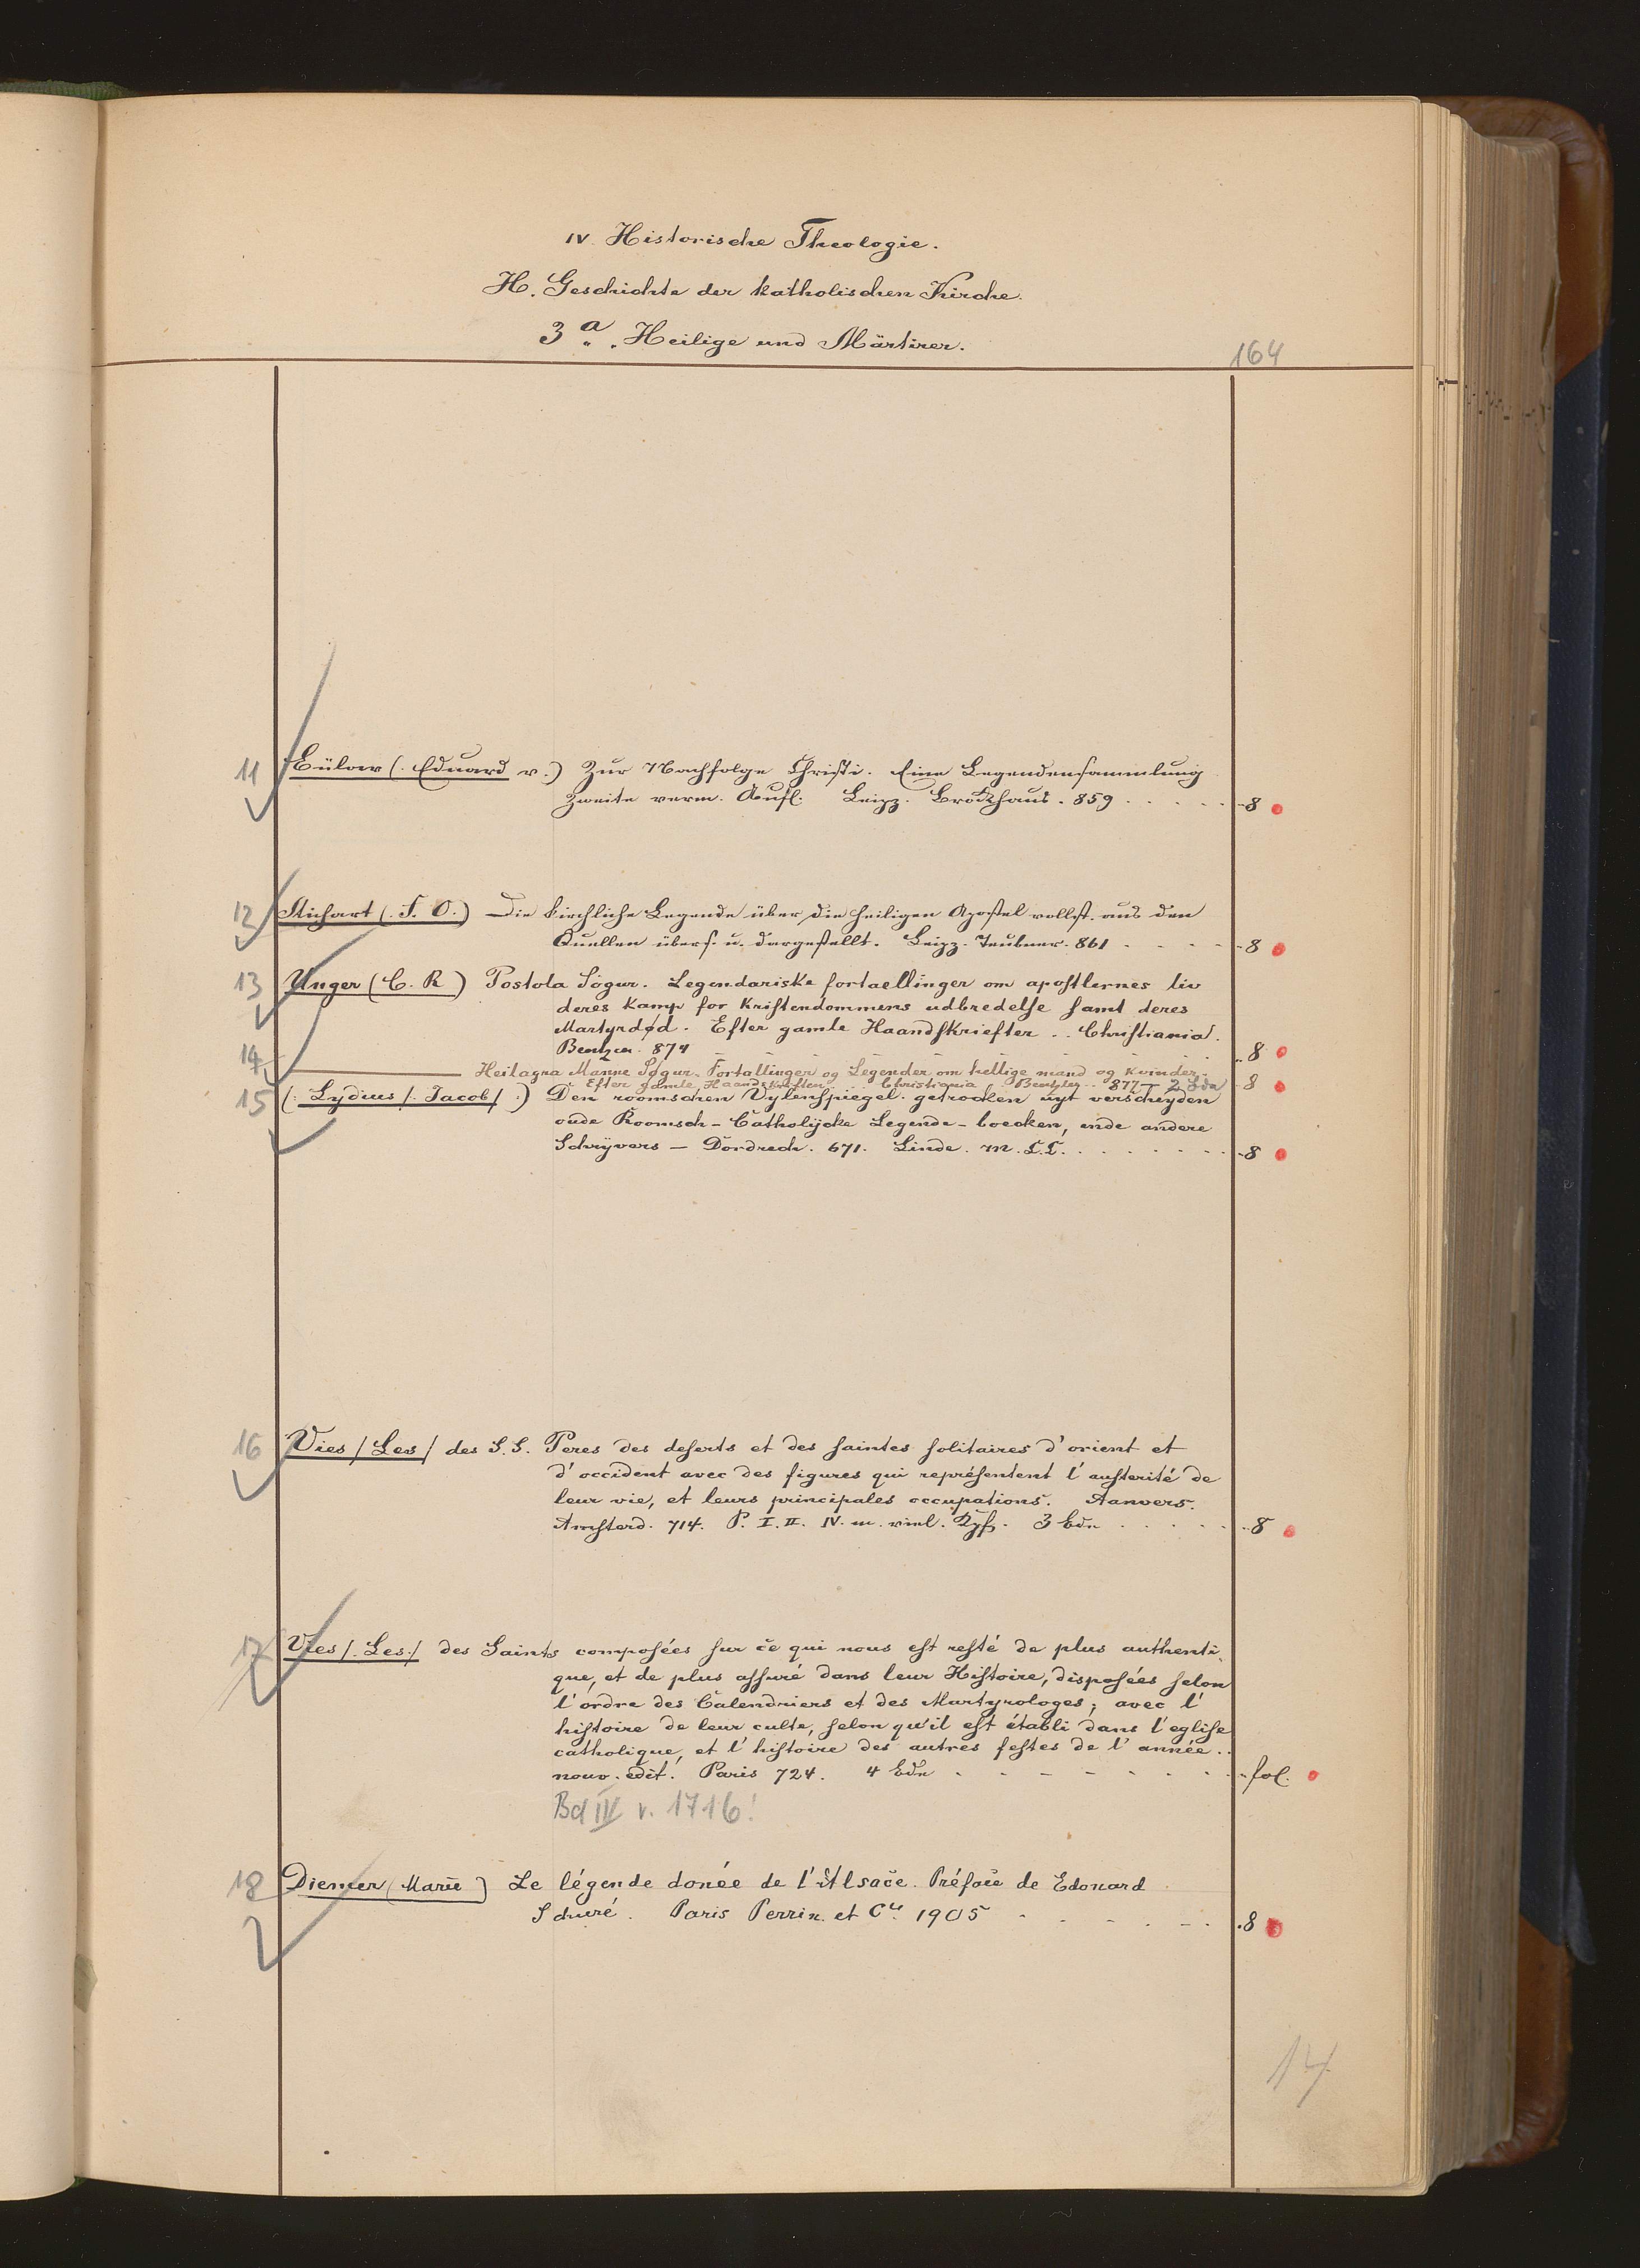 IV. Historische Theologie.
H. Geschichte der katholischen Kirche.
3 a. Heilige und Märtirer.
164
11 Bülow (. Eduard v.) Zur Nachfolge Christi. Eine Legendensammlung
Zweite verm. Aufl. Leipz. Brockhaus. 859 . . . . . 8
12 Stichart (. F. O.) Die kirchliche Legende über die heiligen Apostel vollst. aus den
Quellen übers. u. dargestellt. Leipz. Teubner. 861 . . . . 8
13 Unger (C. R) Postola Sögur. Legendariske fortaellinger om apostlernes liv
deres Kamp for Kristendommens udbredelse samt deres
Martyrdød. Efter gamle Haandskriefter .. Christiania.
Bentzen. 874 . . . . . . 8
14 ——— Heilagra Manne Søgur. Fortallinger og Legender om hellige mænd og Kvinder.
Efter gamle Haandskriften . . Christiania Bentzen .. 877 — 2 Bde 8
15 (: Lydius /. Jacob / .) Den roomschen Vylenspiegel. getrocken uyt verscheyden
oude Roomsch - Catholijcke Legende - boecken, ende andere
Schrijvers — Dordrech. 671. Linde. m. K.K. . . . . . . . 8
16 Vies / Les / des S.S. Peres des deserts et des saintes solitaires d'orient et
d'occident avec des figures qui représentent l'austerité de
leur vie, et leurs principales occupations. Aanvers.
Amsterd. 714. P. I. II. IV. m. viel. Kpf. 3 Bde . . . . . 8
17 Vies /. Les./ des Saints composées sur ce qui nous est resté de plus authenti-
que, et de plus assuré dans leur Histoire, disposées selon
l'ordre des Calendriers et des Martyrologes; avec l'
histoire de leur culte, selon qu'il est établi dans l'eglise
catholique, et l'histoire des autres festes de l'année..
nouv. edit. Paris 724. 4 Bde . . - - - . . . fol.
Bd IV v. 1716!
18 Diemer (Marie) Le légende donée de l'Alsace. Préface de Edouard
Schuré. Paris Perrin. et Cie 1905 . . . . . 8
14